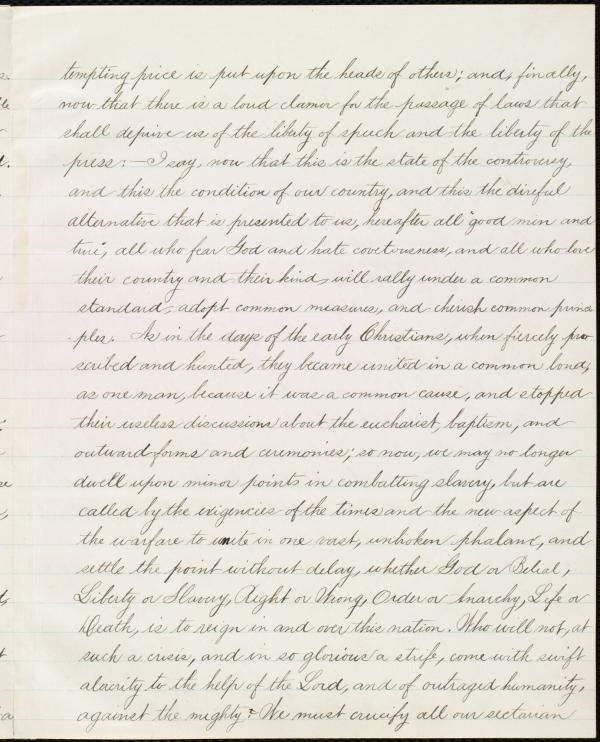 tempting price is put upon the heads of others; and, finally,
now that there is a loud clamor for the passage of laws that
shall deprive us of the liberty of speech and the liberty of the
press:—I say, now that this is the state of the controversy,
and this the condition of our country, and this the direful
alternative that is presented to us, hereafter all "good men and
true", all who fear God and hate covetousness, and all who love
their country and their kind, will rally under a common
standard, adopt common measures, and cherish common princi
ples. As in the days of the early Christians, when fiercely pro
scribed and hunted, they became united in a common bond,
as one man, because it was a common cause, and stopped
their useless discussions about the eucharist, baptism, and
outward forms and ceremonies; so now, we may no longer
dwell upon minor points in combatting slavery, but are
called by the exigencies of the times and the new aspect of
the warfare to unite in one vast, unbroken phalanx, and
settle the point without delay, whether God or Belial,
Liberty or Slavery, Right or Wrong, Order or Anarchy, Life or
Death, is to reign in and over this nation. Who will not, at
such a crisis, and in so glorious a strife, come with swift
alacrity to the help of the Lord, and of outraged humanity,
against the mighty? We must crucify all our sectarian